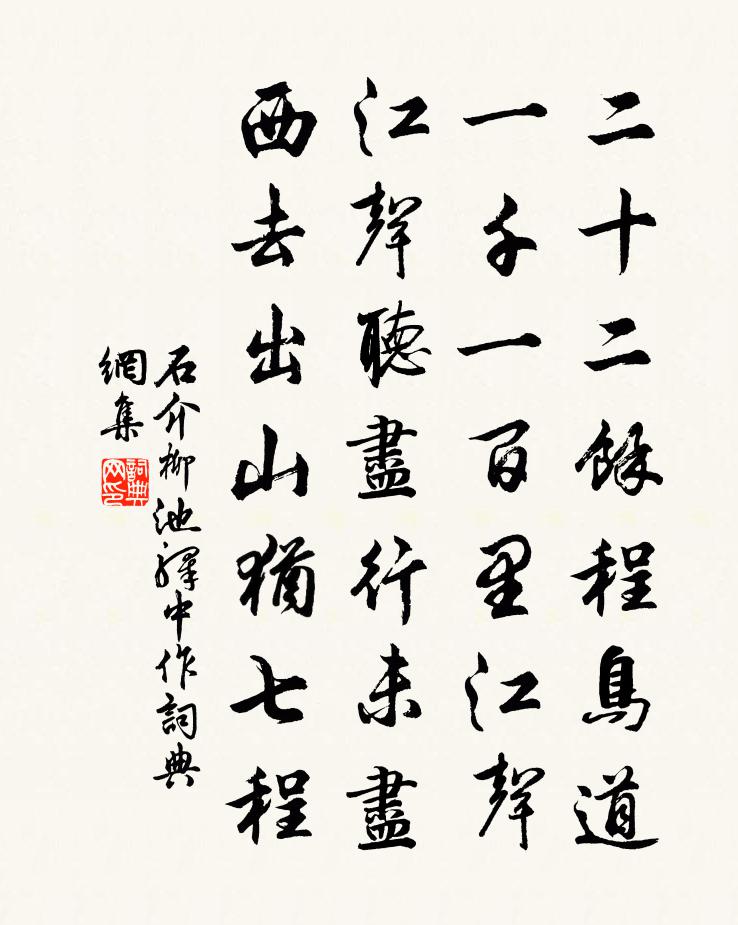 二十二餘程鳥道
一千一百里江聲
江聲聽盡行未盡
西去出山猶七程
石介柳池驛中作詞典
網集
詞典
网印